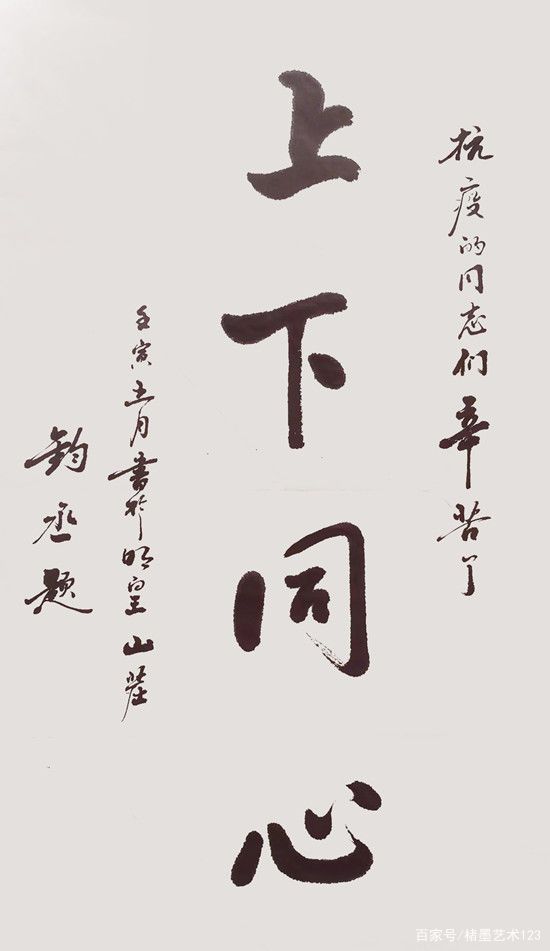 抗疫的同志们辛苦了
上下同心
壬寅五月书於明皇山
钧丞题
百家号/楮墨艺术123